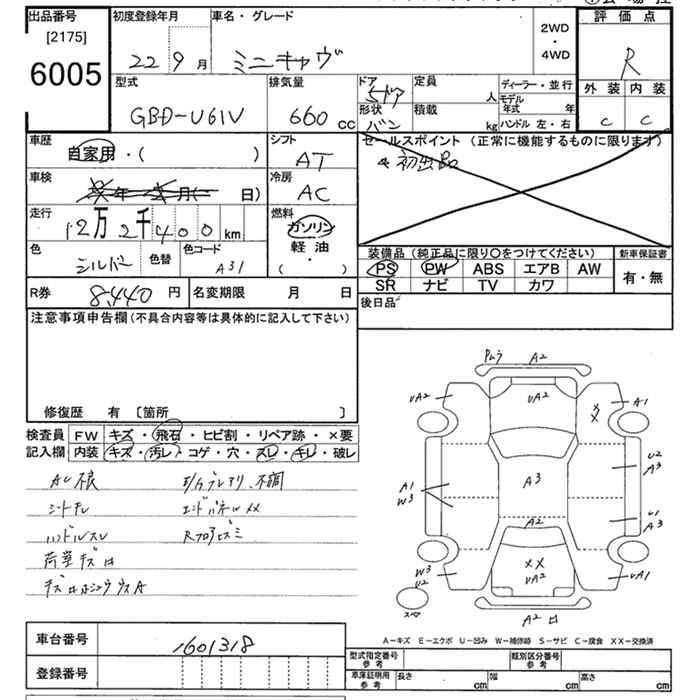 出品番号
[2175]
6005
初度登録年月
22 9月
車名・グレード
ミニキャヴ
2WD
・
4WD
評価点
R
型式
GBD-U61V
排気量
660 cc
ドア
5ドア
形状
バン
定員
人
積載
kg
ディーラー・並行
モデル年式 年
ハンドル 左・右
外装 内装
C C
車歴
自家用・( )
シフト
AT
セールスポイント (正常に機能するものに限ります)
初出品
車検
年 月 日)
冷房
AC
走行
12万2千400km
燃料
ガソリン
軽油
( )
色
シルバー
色替
色コード
A31
装備品 (純正品に限り○をつけてください)
新車保証書
PS PW ABS エアB AW
SR ナビ TV カワ
有・無
R券 8,440円
名変期限 月 日
後日品
注意事項申告欄(不具合内容等は具体的に記入して下さい)
修復歴 有 〔箇所 〕
検査員記入欄
FW キズ・飛石・ヒビ割・リペア跡・×要
内装 キズ・汚レ・コゲ・穴・スレ・キレ・破レ
シートキレ
エンドパネルXX
ハンドルスレ
荷室キズ
A2
UA2
UA2
A1
XX
U2
A3
A1
W3
A3
U1
A3
A2
XX
UA2
W3
U2
UA1
スペア
A2
A-キズ E-エクボ U-凹み W-補修跡 S-サビ C-腐食 XX-交換済
車台番号
1601318
登録番号
型式指定番号参考
類別区分番号参考
車庫証明用参考
長さ cm
幅 cm
高さ cm